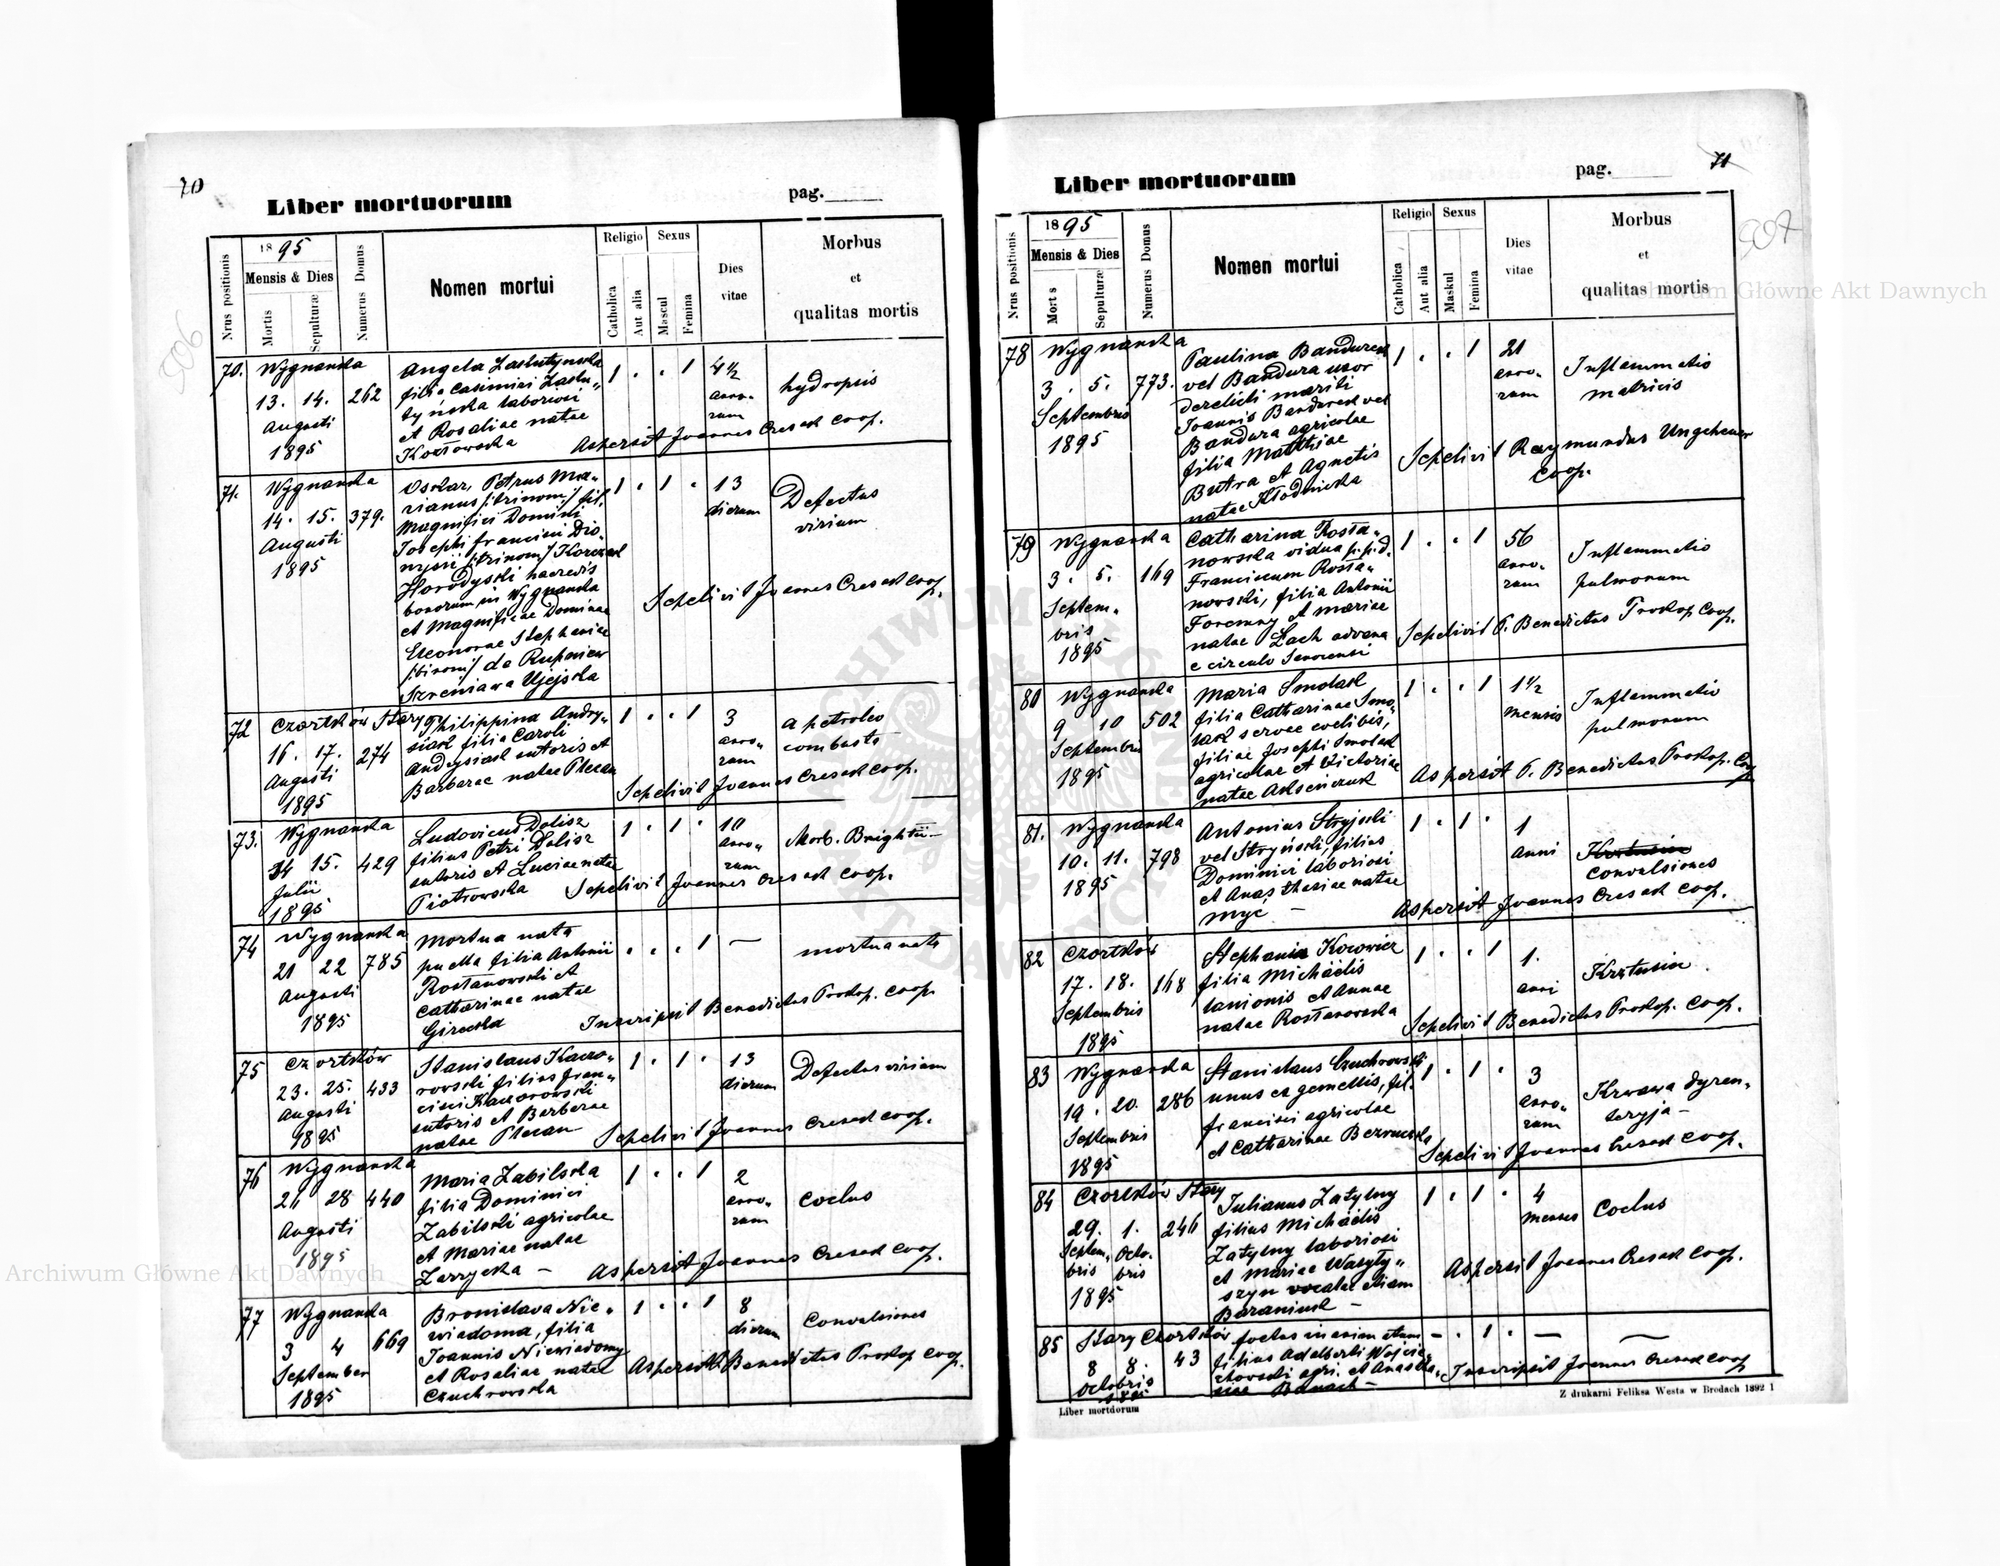 70
Liber mortuorum
pag.
Nrus positionis
1895
Mensis & Dies
Mortis
Sepulturæ
Numerus Domus
Nomen mortui
Religio
Catholica
Aut alia
Sexus
Mascul
Femina
Dies
vitae
Morbus
et
qualitas mortis
506
70. Wygnanka
13. 14. 262
Augusti
1895
Angela
filia Casimiri
laboriosi
et Rosaliae natae
Kozłowska
1 . . 1
4½
anno-
rum
hydropsis
Aspersit Joannes Cresak Coop.
71. Wygnanka
14. 15. 379.
Augusti
1895
Oskar, Petrus Ma-
rianus /:trinom:/ fil.
Magnifici Domini
Josephi Francisci Dio-
nysii /:trinom:/ Korczak
Horodyski haeredis
bonorum in Wygnanka
et Magnificae Dominae
Eleonorae Stephaniae
/:binom:/ de Rupniew
Szreniawa Ujejska
1 . 1 .
13
dierum
Defectus
virium
Sepelivit Joannes Cresak Coop.
72 Czortków Stary
16. 17. 274
Augusti
1895
Philippina Andry-
siak filia Caroli
Andrysiak sutoris et
Barbarae natae Plecan
1 . . 1
3
anno-
rum
a petroleo
combusta
Sepelivit Joannes Cresak Coop.
73. Wygnanka
15. 429
Julii
1895
Ludovicus Dolisz
filius Petri Dolisz
sutoris et Luciae natae
Piotrowska
1 . 1 .
10
anno-
rum
Morb. Brightii
Sepelivit Joannes Cresak Coop.
74 Wygnanka
21 22 785
Augusti
1895
Mortua nata
puella filia Antonii
Rostanowski et
Catharinae natae
Girecka
. . . 1
—
mortua nata
Inscripsit Benedictus Prokop. Coop.
75 Czortków
23. 25. 433
Augusti
1895
Stanislaus Kaczo-
rowski filius Fran-
cisci Kaczorowski
sutoris et Barbarae
natae Plecan
1 . 1 .
13
dierum
Defectus virium
Sepelivit Joannes Cresak Coop.
76 Wygnanka
28 440
Augusti
1895
Maria Zabilska
filia Dominici
Zabilski agricolae
et Mariae natae
Zarzycka —
1 . . 1
2
anno-
rum
Coclus
Aspersit Joannes Cresak Coop.
77 Wygnanka
3 4 669
September
1895
Bronislava Nie-
wiadoma, filia
Joannis Niewiadomy
et Rosaliae natae
Czuchrowska
1 . . 1
8
dierum
Convulsiones
Aspersit Benedictus Prokop Coop.
71
Liber mortuorum
pag.
Nrus positionis
1895
Mensis & Dies
Mort s
Sepulturæ
Numerus Domus
Nomen mortui
Religio
Catholica
Aut alia
Sexus
Maskul
Femina
Dies
vitae
Morbus
et
qualitas mortis
507
78 Wygnanka
3. 5. 773.
Septembris
1895
Paulina Bandurek
vel Bandura uxor
derelicti mariti
Joannis Bandurek vel
Bandura agricolae
filia Matthiae
Butra et Agnetis
natae Kłodnicka
1 . . 1
21
anno-
rum
Inflammatio
matricis
Sepelivit Raymundus Ungeheuer
Coop.
79 Wygnanka
3. 5. 169
Septem-
bris
1895
Catharina Rosta-
nowska vidua p. p. d.
Franciscum Rosta-
nowski, filia Antonii
Foremny et Mariae
natae Lach advena
e circulo
1 . . 1
56
anno-
rum
Inflammatio
pulmonum
Sepelivit P. Benedictus Prokop Coop.
80 Wygnanka
9 10 502
Septembris
1895
Maria Smolak
filia Catharinae Smo-
lak servae coelibis,
filiae Josephi Smolak
agricolae et Victoriae
natae
1 . . 1
1½
mensis
Inflammatio
pulmonum
Aspersit P. Benedictus Prokop. Coop
81. Wygnanka
10. 11. 798
1895
Antonius Stryjski
vel Stryński, filius
Dominici laboriosi
et Anasthasiae natae
Myc —
1 . 1 .
1
anni
Krztusiec
convulsiones
Aspersit Joannes Cresak Coop.
82 Czortków
17. 18. 168
Septembris
1895
Stephania Kocowicz
filia Michäelis
lanionis et Annae
natae Rostanowska
1 . . 1
1.
anni
Krztusiec.
Sepelivit Benedictus Prokop. Coop.
83 Wygnanka
19. 20. 286
Septembris
1895
Stanislaus Czuchrowski
unus ex gemellis, fil.
Francisci agricolae
et Catharinae
1 . 1 .
3
anno-
rum
Krwawa dyzen-
teryja —
Sepelivit Joannes Cresak Coop.
84 Czortków Stary
29. 1. 246
Septem- Octo-
bris bris
1895
Julianus Zatylny
filius Michäelis
Zatylny laboriosi
et Mariae Wasyly-
szyn vocatae etiam
Baraniuk —
1 . 1 .
4
menses
Coclus
Aspersit Joannes Cresak Coop.
85 Stary Czortków
8 8. 43
Octobris
1895
foetus inanimatum
filius Adalberti Wojcie-
chowski agri. et Anasta-
siae Banach —
— . 1 .
—
Inscripsit Joannes Cresak Coop
Liber mortdorum
Z drukarni Feliksa Westa w Brodach 1892 1
Archiwum Główne Akt Dawnych
Archiwum Główne Akt Dawnych
ARCHIWUM GŁÓWNE AKT DAWNYCH